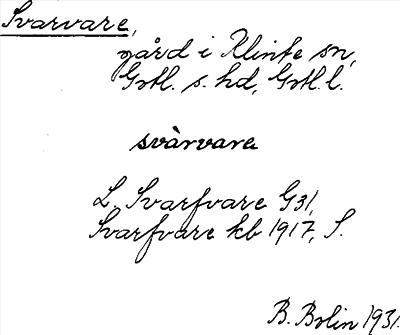 Svarvare,
gård i Klinte sn,
Gotl. s. hd, Gotl. l.
svàrvara
L. Svarfvare G31,
Svarfvare kb 1917, S.
B. Bolin 1931.